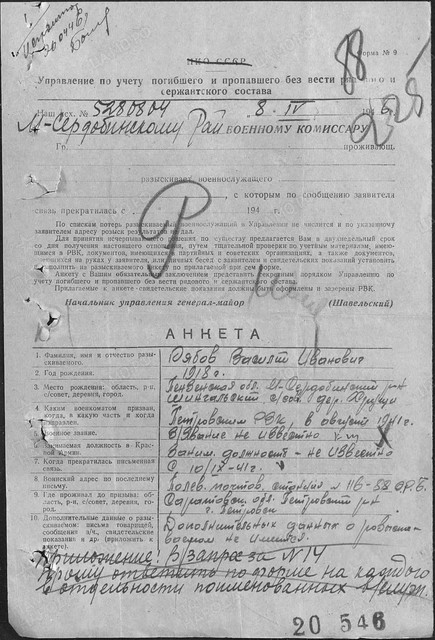 НКО СССР
Форма № 9
88
Управление по учету погибшего и пропавшего без вести рядового и
сержантского состава
Наш исх. № 5280804 8. IV 194
М-Сердобинскому Рай ВОЕННОМУ КОМИССАРУ
Гр. проживающ.
разыскивает военнослужащего
, с которым по сообщению заявителя
связь прекратилась с 194 г.
По спискам потерь разыскиваемый военнослужащий в Управлении не числится и по указанному
заявителем адресу розыск результатов не дал.
Для принятия исчерпывающего решения по существу предлагается Вам в двухнедельный срок
со дня получения настоящего отношения, путем тщательной проверки по учётным материалам, имею-
щимся в РВК, документов, имеющихся в партийных и советских организациях, а также документов,
имеющихся на руках у заявителя, или личных бесед с заявителем и свидетельских показаний установить,
заполнить на разыскиваемого анкету по прилагаемой при сем форме.
Анкету с Вашим обязательным заключением представить секретным порядком Управлению по
учету погибшего и пропавшего без вести рядового и сержантского состава.
Прилагаемые к анкете свидетельские показания должны быть оформлены и заверены РВК.
Начальник управления генерал-майор (Шавельский)
Р
АНКЕТА
1. Фамилия, имя и отчество разы-
скиваемого. Рябов Василий Иванович
2. Год рождения. 1918 г.
3. Место рождения: область, р-н,
с/совет, деревня, город. Пензенская обл. М-Сердобинский р-н
с/сов. дер.
4. Каким военкоматом призван,
когда, в какую часть и когда
направлен. Петровским РВК, в август 1941 г.
5. Военное звание. В/Звание не известно
6. Занимаемая должность в Крас-
ной Армии. Заним. должность - не известно
7. Когда прекратилась письменная
связь. С 10/IX-41 г.
8. Воинский адрес по последнему
письму. Полев. почтов. станция № 116-88
9. Где проживал до призыва: об-
ласть, р-н, с/совет, деревня, го-
род. Саратовск. обл. Петровский р-н
г. Петровск
10. Дополнительные данные о ра-
зыскиваемом: письма товарищей,
сообщения в/ч, свидетельские
показания и др. (приложить к
анкете). Дополнительных данных о розыски-
ваемом не имеется.
Приложение: В/запрос за № 14
Прошу ответить по форме на каждого
в отдельности поименованных
20 546